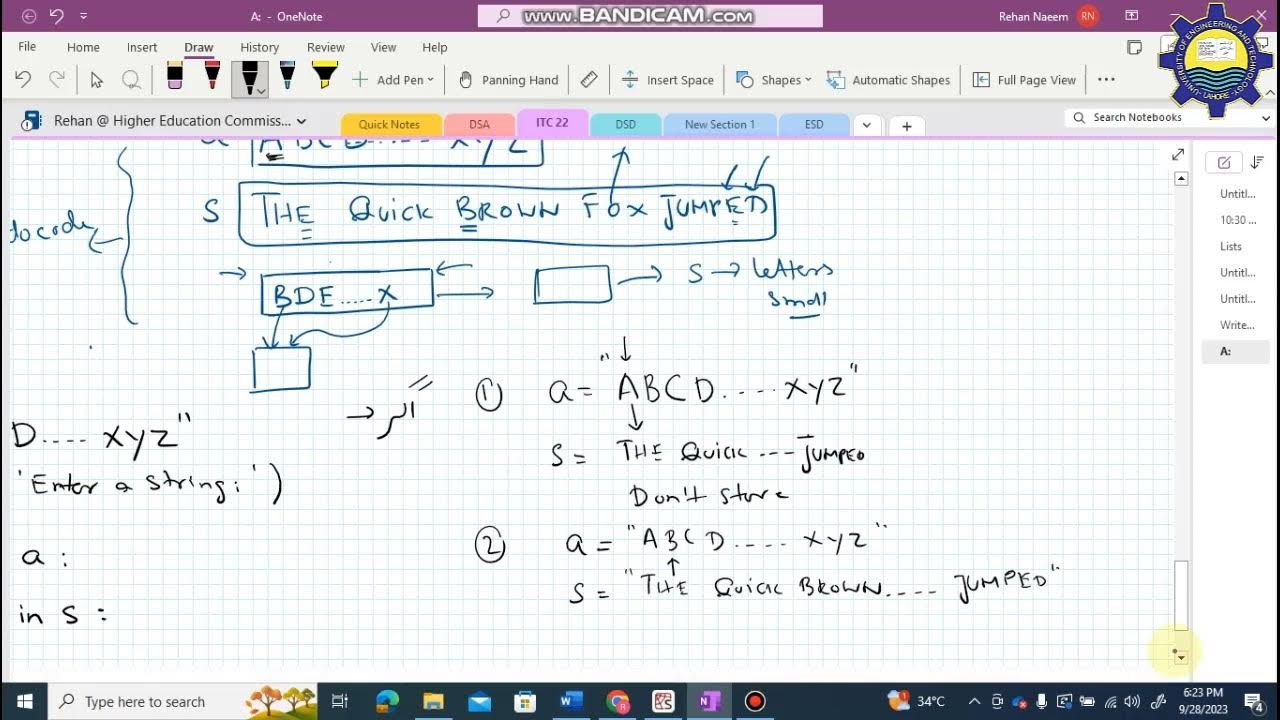 A: - OneNote
www.BANDICAM.com
Rehan Naeem RN
File Home Insert Draw History Review View Help
Add Pen Panning Hand Insert Space Shapes Automatic Shapes Full Page View
UNIVERSITY OF ENGINEERING AND TECHNOLOGY LAHORE
Rehan @ Higher Education Commiss... Quick Notes DSA ITC 22 DSD New Section 1 ESD Search Notebooks
A B C D .... X Y Z
S THE Quick BROWN FOX JUMPED
docode
BDE.....X
S → letters
small
① a = "ABCD....XYZ"
S = THE Quick --- JUMPED
Don't store
② a = "ABCD....XYZ"
S = "THE Quick BROWN.... JUMPED"
D.... XYZ"
'Enter a string:')
a :
in S :
Untitl...
10:30 ...
Lists
Untitl...
Untitl...
Write...
A:
Type here to search
34°C
6:23 PM
9/28/2023
4